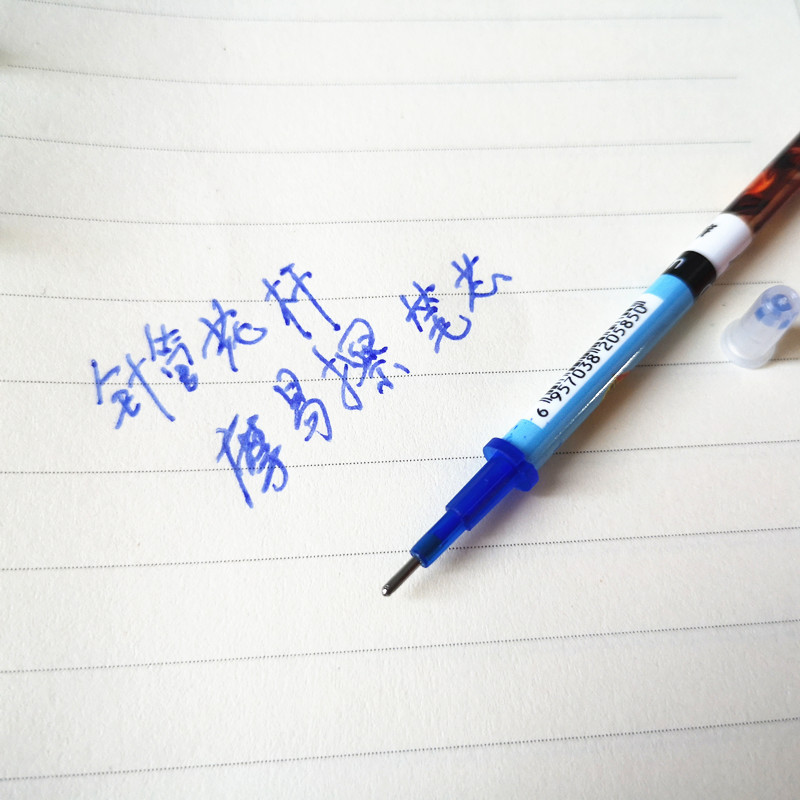 针管花杆
摩易擦笔芯
6 957038 205850